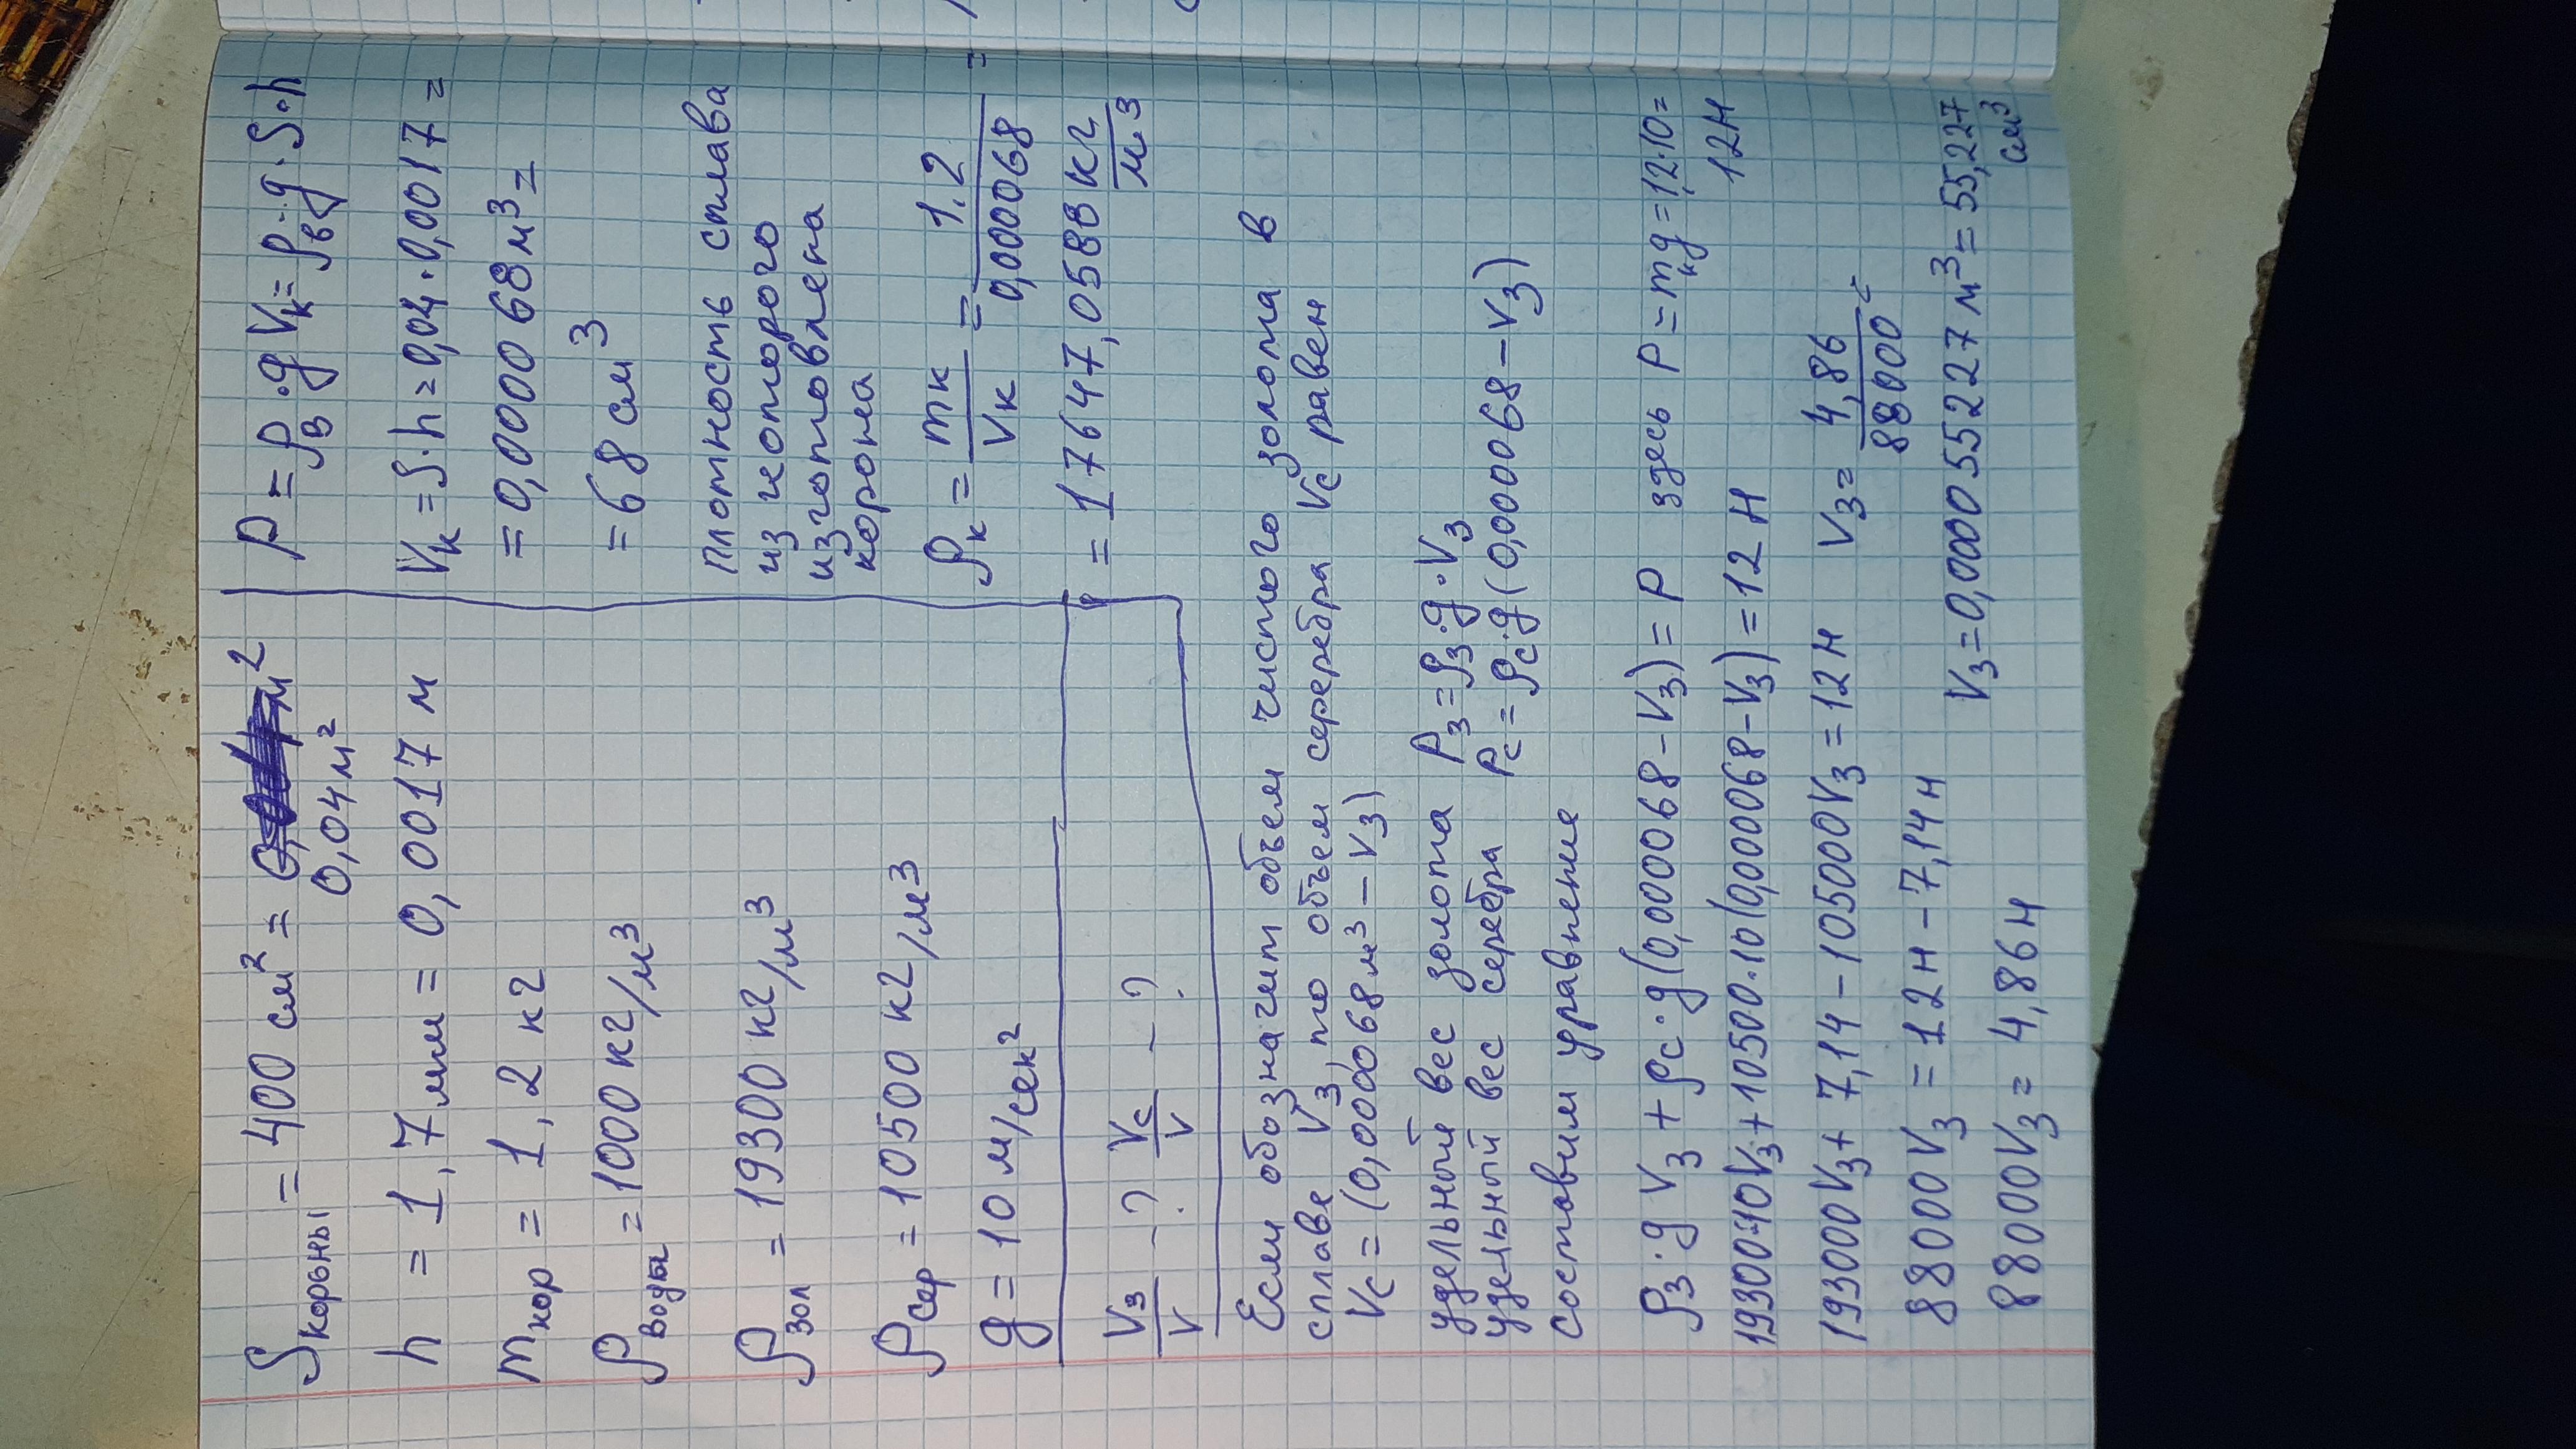 S короны = 400 см² = 0,04 м²
h = 1,7 мм = 0,0017 м
m кор = 1,2 кг
ρ воды = 1000 кг/м³
ρ зол = 19300 кг/м³
ρ сер = 10500 кг/м³
g = 10 м/сек²
Vз/V - ? Vс/V - ?
P = ρв·g Vк = ρв·g·S·h
Vк = S·h = 0,04·0,0017 =
= 0,000068 м³ =
= 68 см³
плотность сплава
из которого
изготовлена
корона
ρк = mк/Vк = 1,2/0,000068 =
= 17647,0588 кг/м³
Если обозначит объем чистого золота в
сплаве Vз, то объем серебра Vс равен
Vс = (0,000068 м³ − Vз)
удельный вес золота Pз = ρз·g·Vз
удельный вес серебра Pс = ρс·g(0,000068 − Vз)
Составим уравнение
ρз·g Vз + ρс·g(0,000068 − Vз) = P здесь P = mкg = 1,2·10 =
12 Н
19300·10Vз + 10500·10(0,000068 − Vз) = 12 Н
193000Vз + 7,14 − 105000Vз = 12 Н Vз = 4,86/88000 =
88000Vз = 12 Н − 7,14 Н
88000Vз = 4,86 Н
Vз = 0,000055227 м³ = 55,227
см³